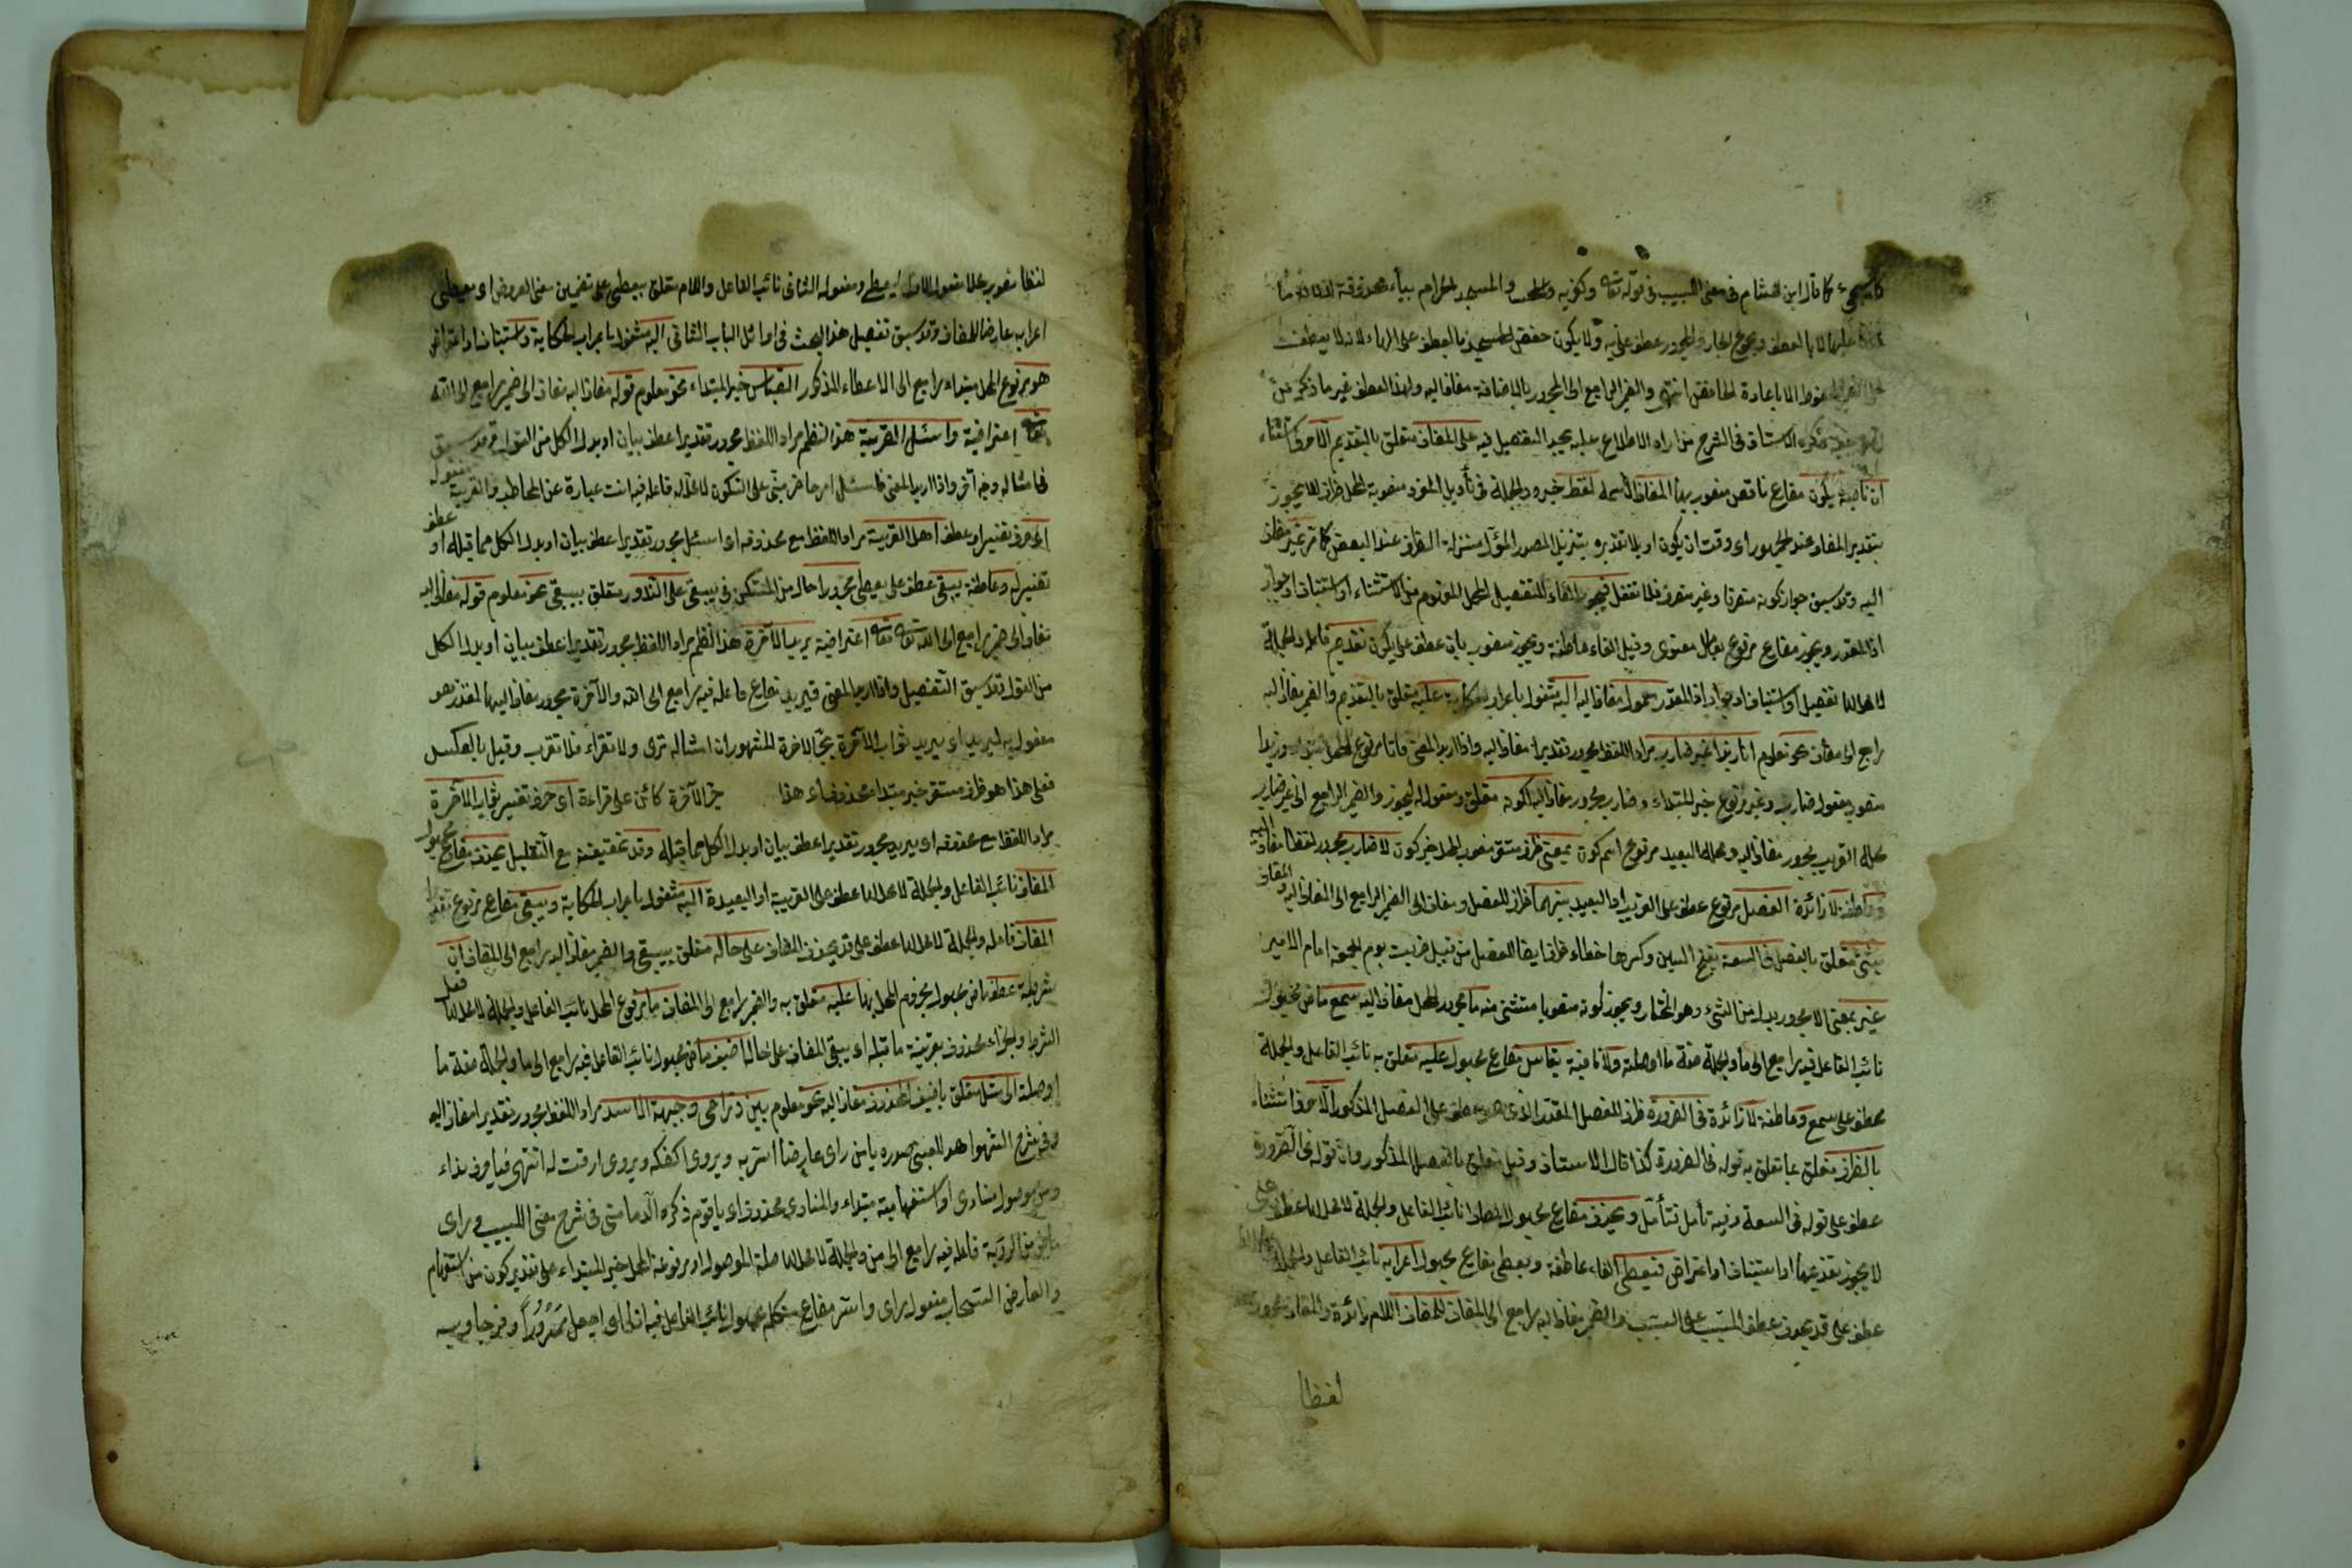 كما سيجيء كما قال ابن هشام في مغنى اللبيب في قوله تعالى وكفر به والمسجد الحرام بباء محذوفة لدلالة ما
عليها لا بالعطف ومجموع الجار والمجرور عطف على به ولا يكون خفض المسجد بالعطف على الهاء لانه لا يعطف
على الضمير المخفوض الا باعادة الخافض انتهى والضمير الراجع الى المجرور بالاضافة مضاف اليه ولهذا العطف غير ما ذكر
ذكره الاستاذ في الشرح من اراد الاطلاع عليه يجد التفصيل فيه على المضاف متعلق بالتقديم الا حرف استثناء
ان ناصبة يكون مضارع ناقص منصوب بها المضاف اسمه لفظ خبره والجملة في تأويل المفرد منصوبة المحل ظرف للا يجوز
بتقدير المضاف عند الجمهور اى وقت ان يكون او بلا تقديره بتنزيل المصدر المؤل منزلة الظرف عند البعض كما مر غير مضاف
اليه وقد سبق جواز كونه متصرفا وغير متصرف فلا تغفل فيجوز الفاء للتفصيل المجمل المفهوم من الاستثناء او استيناف او جواب
اذا المقدر ويجوز مضارع مرفوع بعامل معنوى وقيل الفاء عاطفة ويجوز منصوب بان عطف على يكون تقديم فاعله والجملة
لا محل لها تفصيل او استيناف او جواب اذا المقدر معمول مضاف اليه اليه مشغول باعراب الحكاية عليه متعلق بالتقديم والضمير مضاف اليه
راجع الى مضاف نحو معلوم انا زيدا غير ضارب مراد اللفظ مجرور تقديرا مضاف اليه واذا اريد المعنى فانا مرفوع المحل مبتداء وزيدا
منصوب مفعول ضارب وغير مرفوع خبر المبتداء وضارب مجرور مضاف اليه لكونه متعلق ومفعول له ليجوز والضمير الراجع الى غير ضارب
محله القريب مجرور مضاف اليه ومحله البعيد مرفوع اسم كون بمعنى ظرف مستقر منصوب المحل خبر كون لا ضارب مجرور لفظا مضاف اليه
وعاطفة لا زائدة الفصل مرفوع عطف على القريب او البعيد بينهما ظرف للفصل ومضاف الى الضمير الراجع الى المضاف اليه والمضاف
بشئ متعلق بالفصل في السعة بفتح السين وكسرها خطاء ظرف ايضا للفصل من قبيل ضربت يوم الجمعة امام الامير
غير بمعنى الا مجرور بدل من الشئ وهو المختار ويجوز كونه منصوبا مستثنى منه ما مجرور المحل مضاف اليه سمع ماض مجهول
نائب الفاعل فيه راجع الى ما والجملة صفة ما او صلته ولا نافية يقاس مضارع مجهول عليه متعلق به نائب الفاعل والجملة
عطف على سمع وعاطفة لا زائدة في الضرورة ظرف للفصل المقدر الذى هو عطف على الفصل المذكور الا حرف استثناء
بالظرف متعلق بما تعلق به قوله في الضرورة كذا قال الاستاذ وقيل متعلق بالفصل المذكور وان قوله في الضرورة
عطف على قوله في السعة وفيه تأمل فتأمل ويحذف مضارع مجهول المضاف نائب الفاعل والجملة لا محل لها عطف على
لا يجوز تقديمها او استيناف او اعتراض فيعطى الفاء عاطفة ويعطى مضارع مجهول اعرابه نائب الفاعل والجملة
عطف على قد يحذف عطف المسبب على السبب والضمير مضاف اليه راجع الى المضاف للمضاف اللام زائدة والمضاف مجرور
لفظا
لفظا منصوب محلا مفعول الاول ليعطى ومفعوله الثانى نائب الفاعل واللام متعلق بيعطى على تضمين معنى العروض اى يعطى
اعرابه عارضا للمضاف وقد سبق تفصيل هذا البحث في اوائل الباب الثانى اليه مشغول باعراب الحكاية واستيناف او اعتراض
هو مرفوع المحل مبتداء راجع الى الاعطاء المذكور القياس خبر المبتداء نحو معلوم قوله مضاف اليه مضاف الى ضمير راجع الى الله
تعالى اعتراضية واسئل القرية هذا النظم مراد اللفظ مجرور تقديرا عطف بيان او بدل الكل من القول وقد سبق
في امثاله وجه آخر واذا اريد المعنى فاسئل امر حاضر مبنى على السكون لا محل له فاعله فيه انت عبارة عن المخاطب والقرية مفعوله
اى حرف تفسير او عطف اهل القرية مراد اللفظ مع محذوفه اى اسئل مجرور تقديرا عطف بيان او بدل الكل مما قبله او عطف
تفسير له وعاطفة يبقى عطف على يعطى مجرورا حال من المستكن في يبقى على الندور متعلق بيبقى نحو معلوم قوله مضاف اليه
مضاف الى ضمير راجع الى الله تعالى تعالى اعتراضية يريد الآخرة هذا النظم مراد اللفظ مجرور تقديرا عطف بيان او بدل الكل
من القول وقد سبق التفصيل واذا اريد المعنى فيريد مضارع فاعله فيه راجع الى الله والآخرة مجرور مضاف اليها لمقدر هو
مفعول به ليريد اى يريد ثواب الآخرة بجر الاخرة المشهور ان امثاله ترى ولا تقراء فلا تقرب وقيل بالعكس
فعلى هذا هو ظرف مستقر خبر مبتداء محذوف اى هذا جر الآخرة كائن على قراءة اى حرف تفسير ثواب الآخرة
مراد اللفظ مع محذوفه اى يريد مجرور تقديرا عطف بيان او بدل الكل مما قبله وقد تحقيقية مع التقليل يحذف مضارع مجهول
المضاف نائب الفاعل والجملة لا محل لها عطف على القريبة او البعيدة اليه مشغول باعراب الحكاية ويبقى مضارع مرفوع تقديرا
المضاف فاعله والجملة لا محل لها عطف على قد يحذف المضاف على حاله متعلق بيبقى والضمير مضاف اليه راجع الى المضاف ان
شرطية عطف ماض مجهول مجزوم المحل بها عليه متعلق به والضمير راجع الى المضاف ما مرفوع المحل نائب الفاعل والجملة لا محل لها فعل
الشرط والجزاء محذوف بقرينة ما قبله اى يبقى المضاف على حاله اضيف ماض مجهول نائب الفاعل فيه راجع الى ما والجملة صفة ما
او صلته الى مثل متعلق باضيف المحذوف مضاف اليه نحو معلوم بين ذراعى وجبهة الاسد مراد اللفظ مجرور تقديرا مضاف اليه
وفى شرح الشواهد للعينى صدره يا من راى عارضا اسر به ويروى اكفكفه ويروى ارقت له انتهى فيا حرف نداء
ومن موصول منادى او استفهامية مبتداء والمنادى محذوف اى يا قوم ذكره الدمامينى في شرح مغنى اللبيب وراى
ماض من الرؤية فاعله فيه راجع الى من والجملة لا محل لها صلة الموصول او مرفوعة المحل خبر المبتداء على تقدير كون من استفهام
والعارض السحاب مفعول راى واسر مضارع متكلم مجهول نائب الفاعل فيه انا اى اجعل مسرورا وفرحا وبه